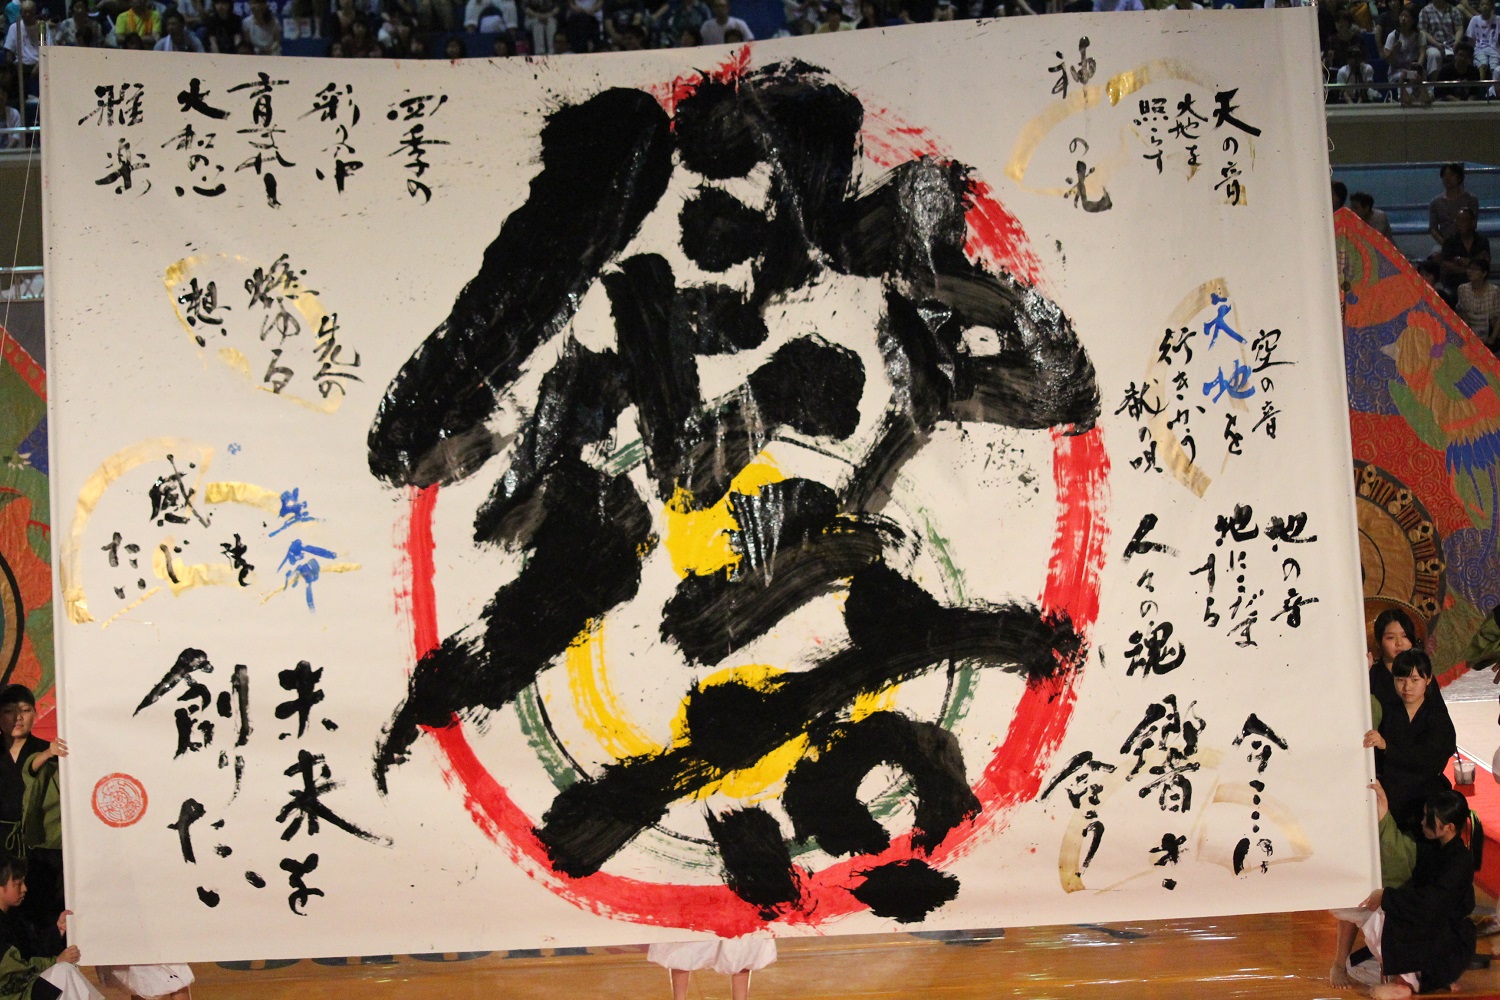 天の音
大地を
照らす
神の光
空の音
天地を
行きかう
龍の唄
地の音
地にこだま
する
人々の魂
今ここに
響き
合う
四季の
彩の中
育まれし
大和の心
雅楽
先人の
燃ゆる
想い
生命
を
感じ
たい
未来を
創りたい